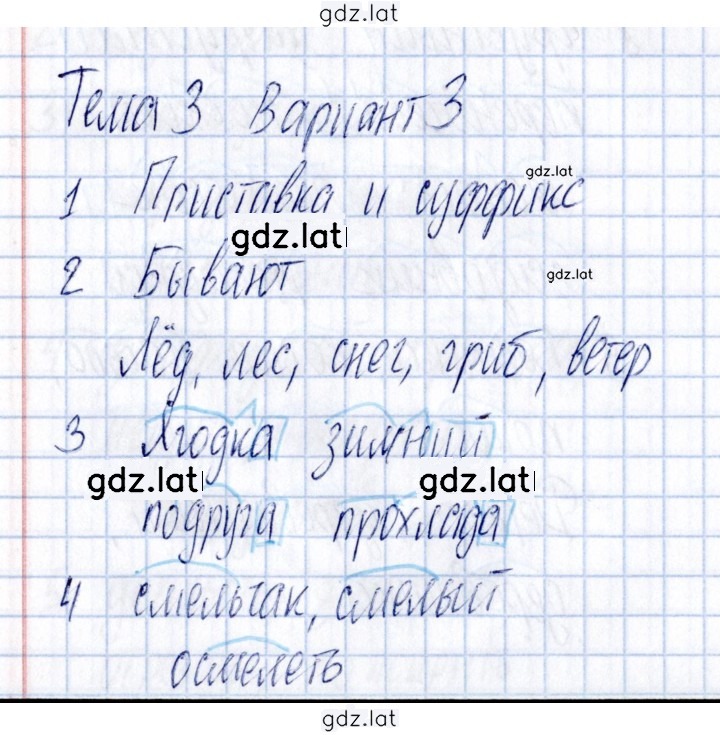 gdz.lat
Тема 3 Вариант 3
gdz.lat
1 Приставка и суффикс
gdz.lat
2 Бывают
gdz.lat
Лёд, лес, снег, гриб, ветер
3 Ягодка зимний
gdz.lat gdz.lat
подруга прохлада
4 смельчак, смелый
осмелеть
gdz.lat